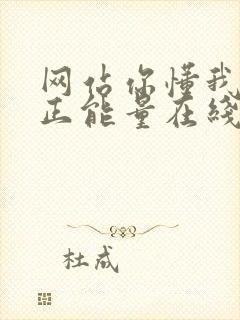 网站你懂我
正能量在线
杜成